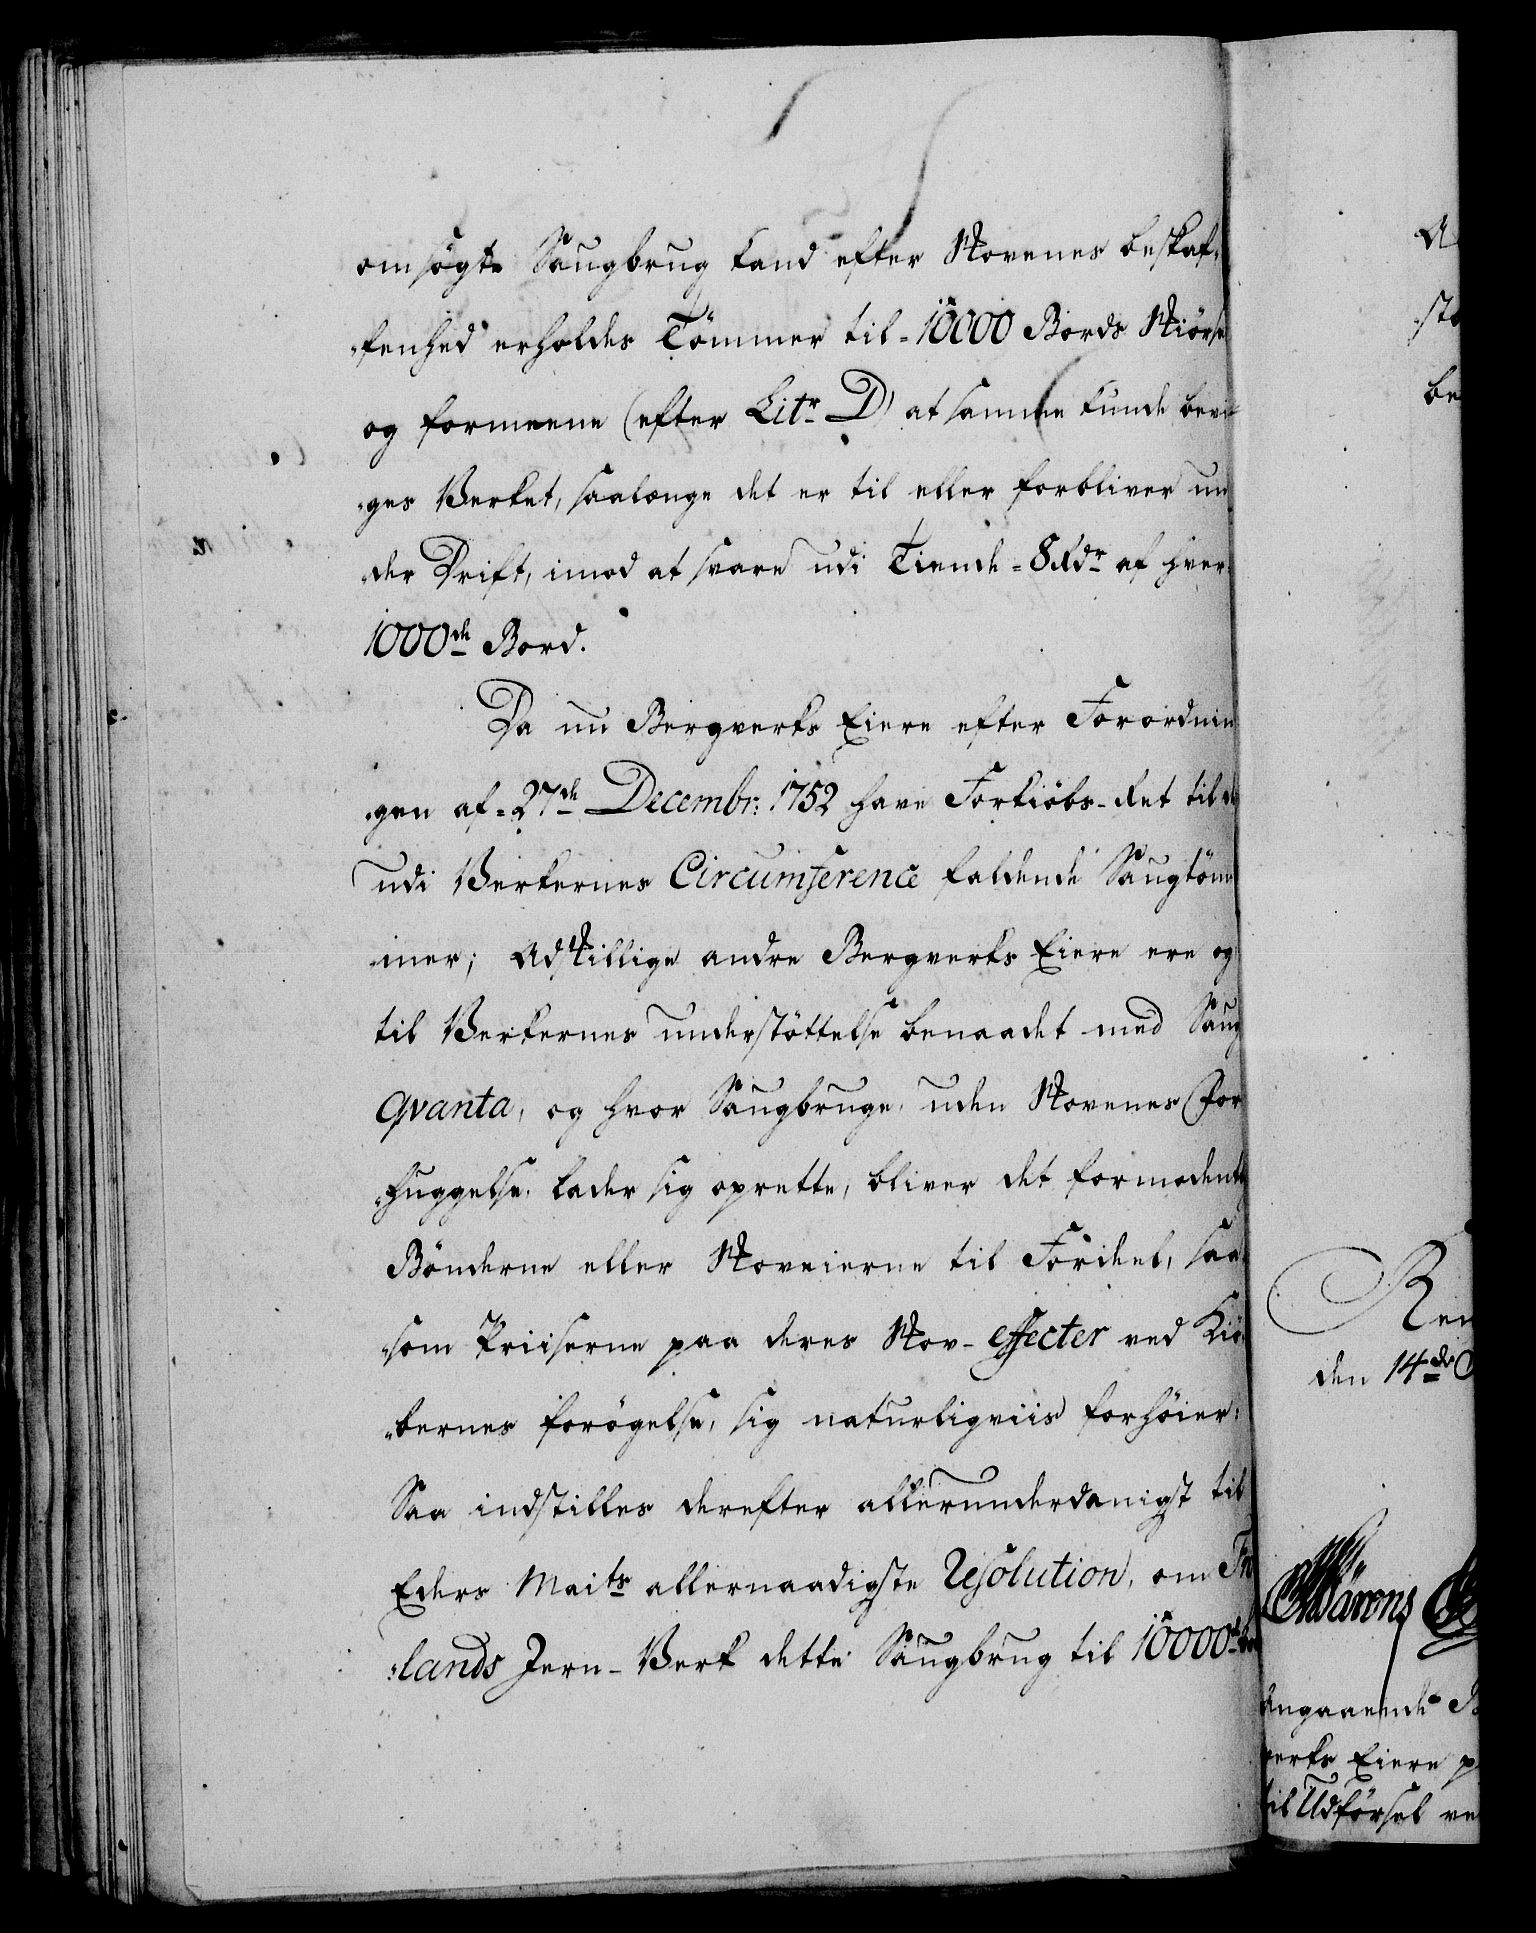 omsøgte Saugbrug kand efter Skovenes beskaf-
fenhed erholdes Tømmer til 10000 Bords Skiørsel
og formeene (efter Litr. D) at samme kunde bevil-
ges Verket, saalænge det er til eller forbliver un-
der Drift, imod at svare udi Tiende 8 Rdr af hver
1000de Bord.
Da nu Bergverks Eiere efter Forordnin-
gen af 27de Decembr: 1752 have Forkiøbs-Ret til de
udi Verkernes Circumference faldende Saugtøm-
mer; Adskillige andre Bergverks Eiere ere og
til Verkernes understøttelse benaadet med Saug
Qvanta, og hvor Saugbruge, uden Skovenes For-
huggelse, lader sig oprette, bliver det formodentlig
Bønderne eller Skoveierne til Fordeel, saa-
som Priiserne paa deres Skov-effecter ved Kiø-
bernes forøgelse, sig naturligviis forhøier:
Saa indstilles derefter allerunderdanigst til
Eders Maits allernaadigste Resolution, om
lands Jern-Verk dette Saugbrug til 10000de
sta
be
Ren
den 14de
Angaaende
verks Eiere p
til Udførsel ve